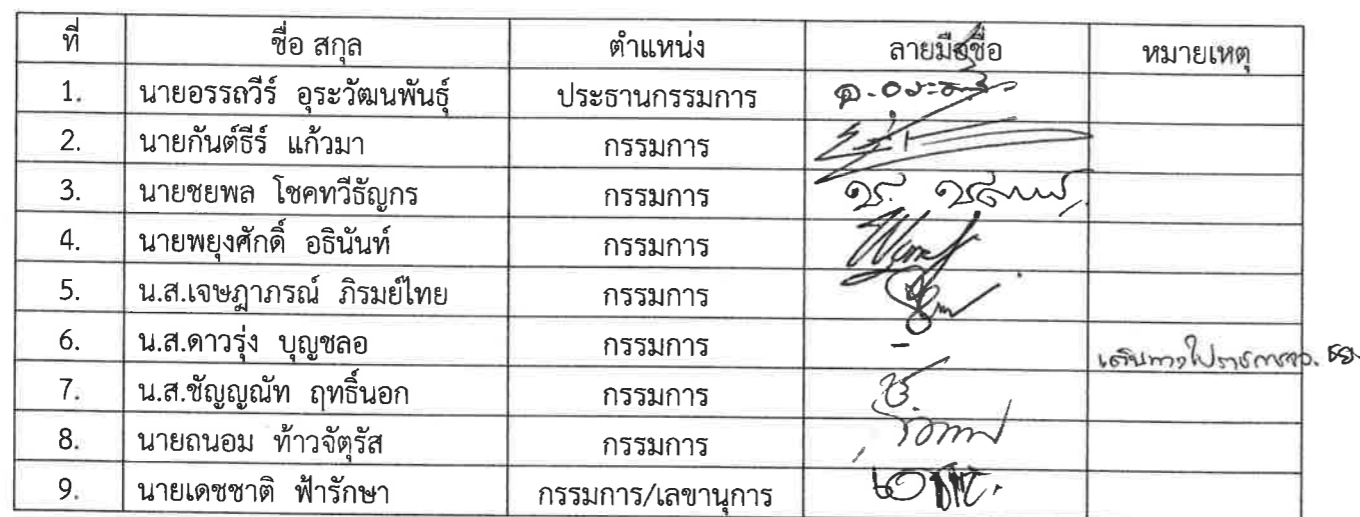 ที่ ชื่อ สกุล ตำแหน่ง ลายมือชื่อ หมายเหตุ
1. นายอรรถวีร์ อุระวัฒนพันธุ์ ประธานกรรมการ
2. นายกันต์ธีร์ แก้วมา กรรมการ
3. นายชยพล โชคทวีธัญกร กรรมการ
4. นายพยุงศักดิ์ อธินันท์ กรรมการ
5. น.ส.เจษฎาภรณ์ ภิรมย์ไทย กรรมการ
6. น.ส.ดาวรุ่ง บุญชลอ กรรมการ - เดินทางไปราชการจ.
7. น.ส.ชัญญณัท ฤทธิ์นอก กรรมการ
8. นายถนอม ท้าวจัตุรัส กรรมการ
9. นายเดชชาติ ฟ้ารักษา กรรมการ/เลขานุการ